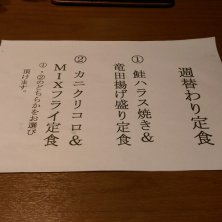 週替わり定食
① 鮭ハラス焼き&
竜田揚げ盛り定食
② カニクリコロ&
MIXフライ定食
①、②のどちらかをお選び
頂けます。